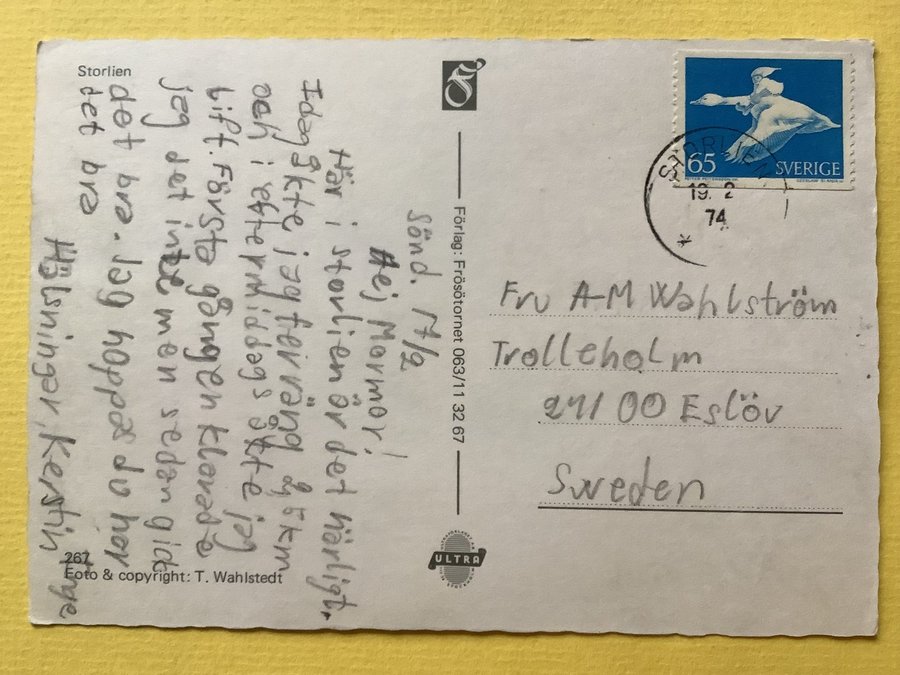 Storlien
Sönd. 17/2
Hej Mormor!
Här i storlien är det härligt.
Idag åkte jag terräng km
och i eftermiddags åkte jag
lift. Första gången klarade
jag det inte men sedan gick
det bra. Jag hoppas du har
det bra
Hälsningar, Kerstin
267
Foto & copyright: T. Wahlstedt
Förlag: Frösötornet 063/11 32 67
ULTRA
65 SVERIGE
STORLIEN
19. 2
74
*
Fru A-M Wahlström
Trolleholm
241 00 Eslöv
Sweden